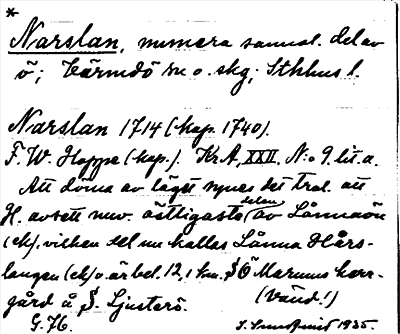 *
Narslan, numera sannol. del av
ö; Värmdö sn o. skg; Sthlms l.
Narslan 1714 (kop. 1740).
F. W. Hoppe (kop.). KrA, XXII, N:o 9. lit. a.
Att döma av läget synes det trol. att
H. avsett nuv. östligaste delen av Lännaön
(ek), vilken del nu kallas Länna Hårs-
langen (ek) o. är bel. 12,1 km. SÖ Marums herr-
gård å S. Ljusterö.
(Vänd!)
G. 76.
1935